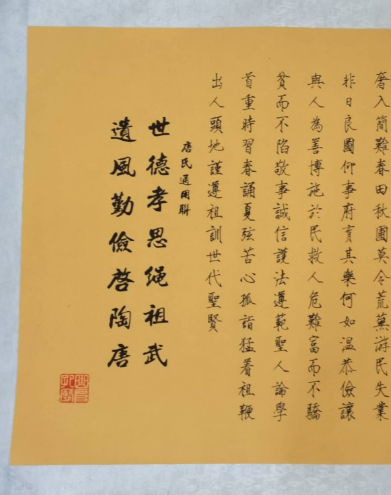 奢入簡難春田秋圃莫令荒蕪游民失業
非日良圖仰事府育其樂何如溫恭儉讓
與人為善博施於民救人危難富而不驕
貧而不陷敬事誠信護法遵範聖人論學
首重時習春誦夏弦苦心孤詣猛着祖鞭
出人頭地謹遵祖訓世代聖賢
唐氏通用聯
世德孝思繩祖武
遺風勤儉啓陶唐